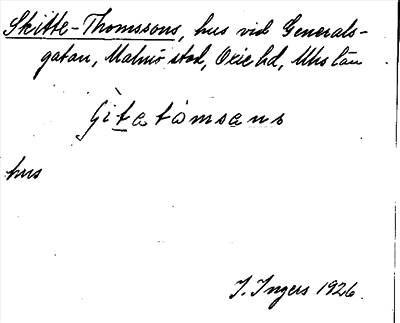 Skitte-Thomssons, hus vid Generals-
gatan, Malmö stad, Oxie hd, Mhs län
hus
I. Ingers 1926.